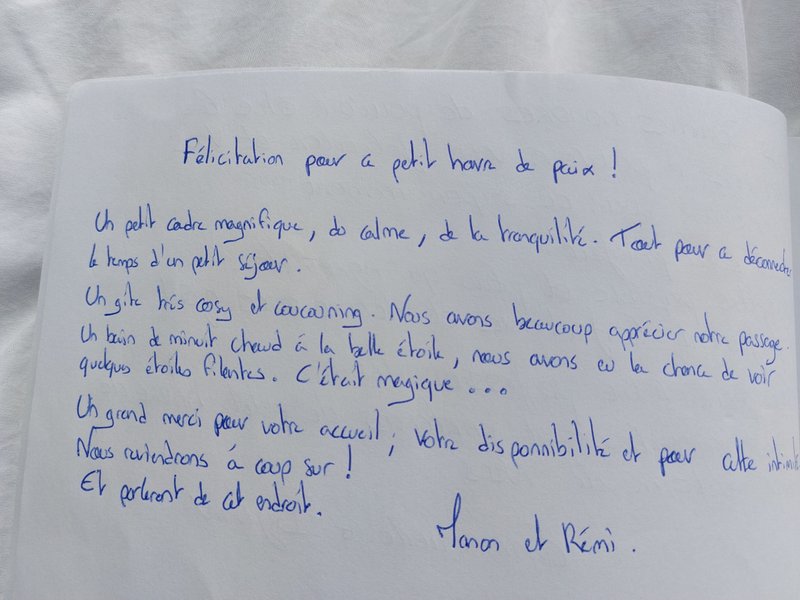 Félicitation pour ce petit havre de paix !
Un petit cadre magnifique, du calme, de la tranquilité. Tout pour ce déconnecter
le temps d'un petit séjour.
Un gîte très cosy et coucouning. Nous avons beaucoup apprécier notre passage.
Un bain de minuit chaud à la belle étoile, nous avons eu la chance de voir
quelques étoiles filentes. C'était magique ...
Un grand merci pour votre accueil, votre disponnibilité et pour cette
Nous reviendrons à coup sur !
Et parleront de cet endroit.
Manon et Rémi.